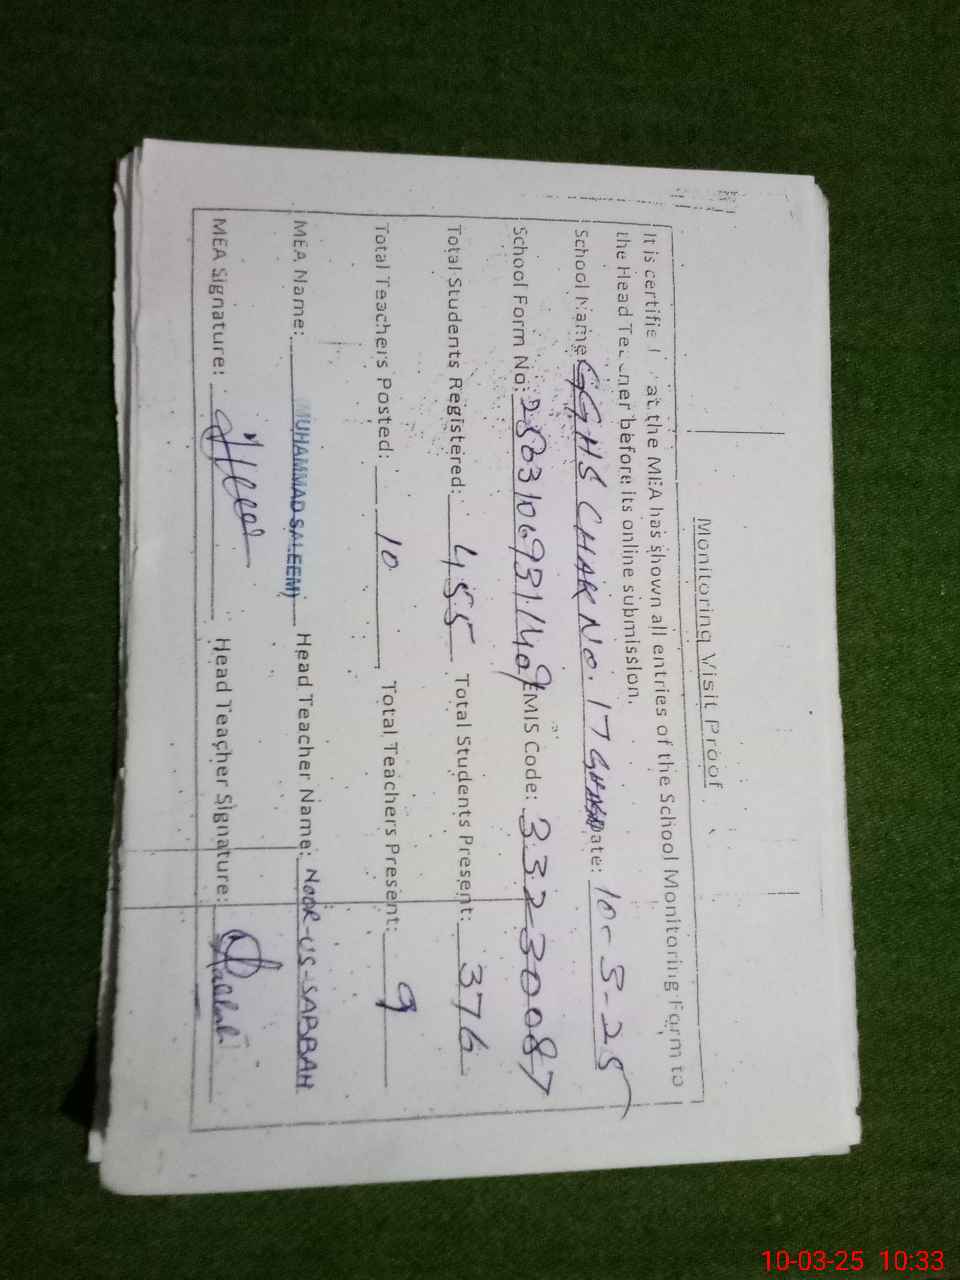 Monitoring Visit Proof
It is certifie at the MEA has shown all entries of the School Monitoring Farm to
the Head Teacher before its online submission.
School Name GGHS CHAK NO. 17 Date: 10-3-25
School Form No: EMIS Code: 33230087
Total Students Registered: 455 Total Students Present: 376
Total Teachers Posted: 10 Total Teachers Present: 9
MEA Name: MUHAMMAD SALEEM) Head Teacher Name: NOOR-US-SABBAH
MEA Signature: Head Teacher Signature:
10-03-25 10:33